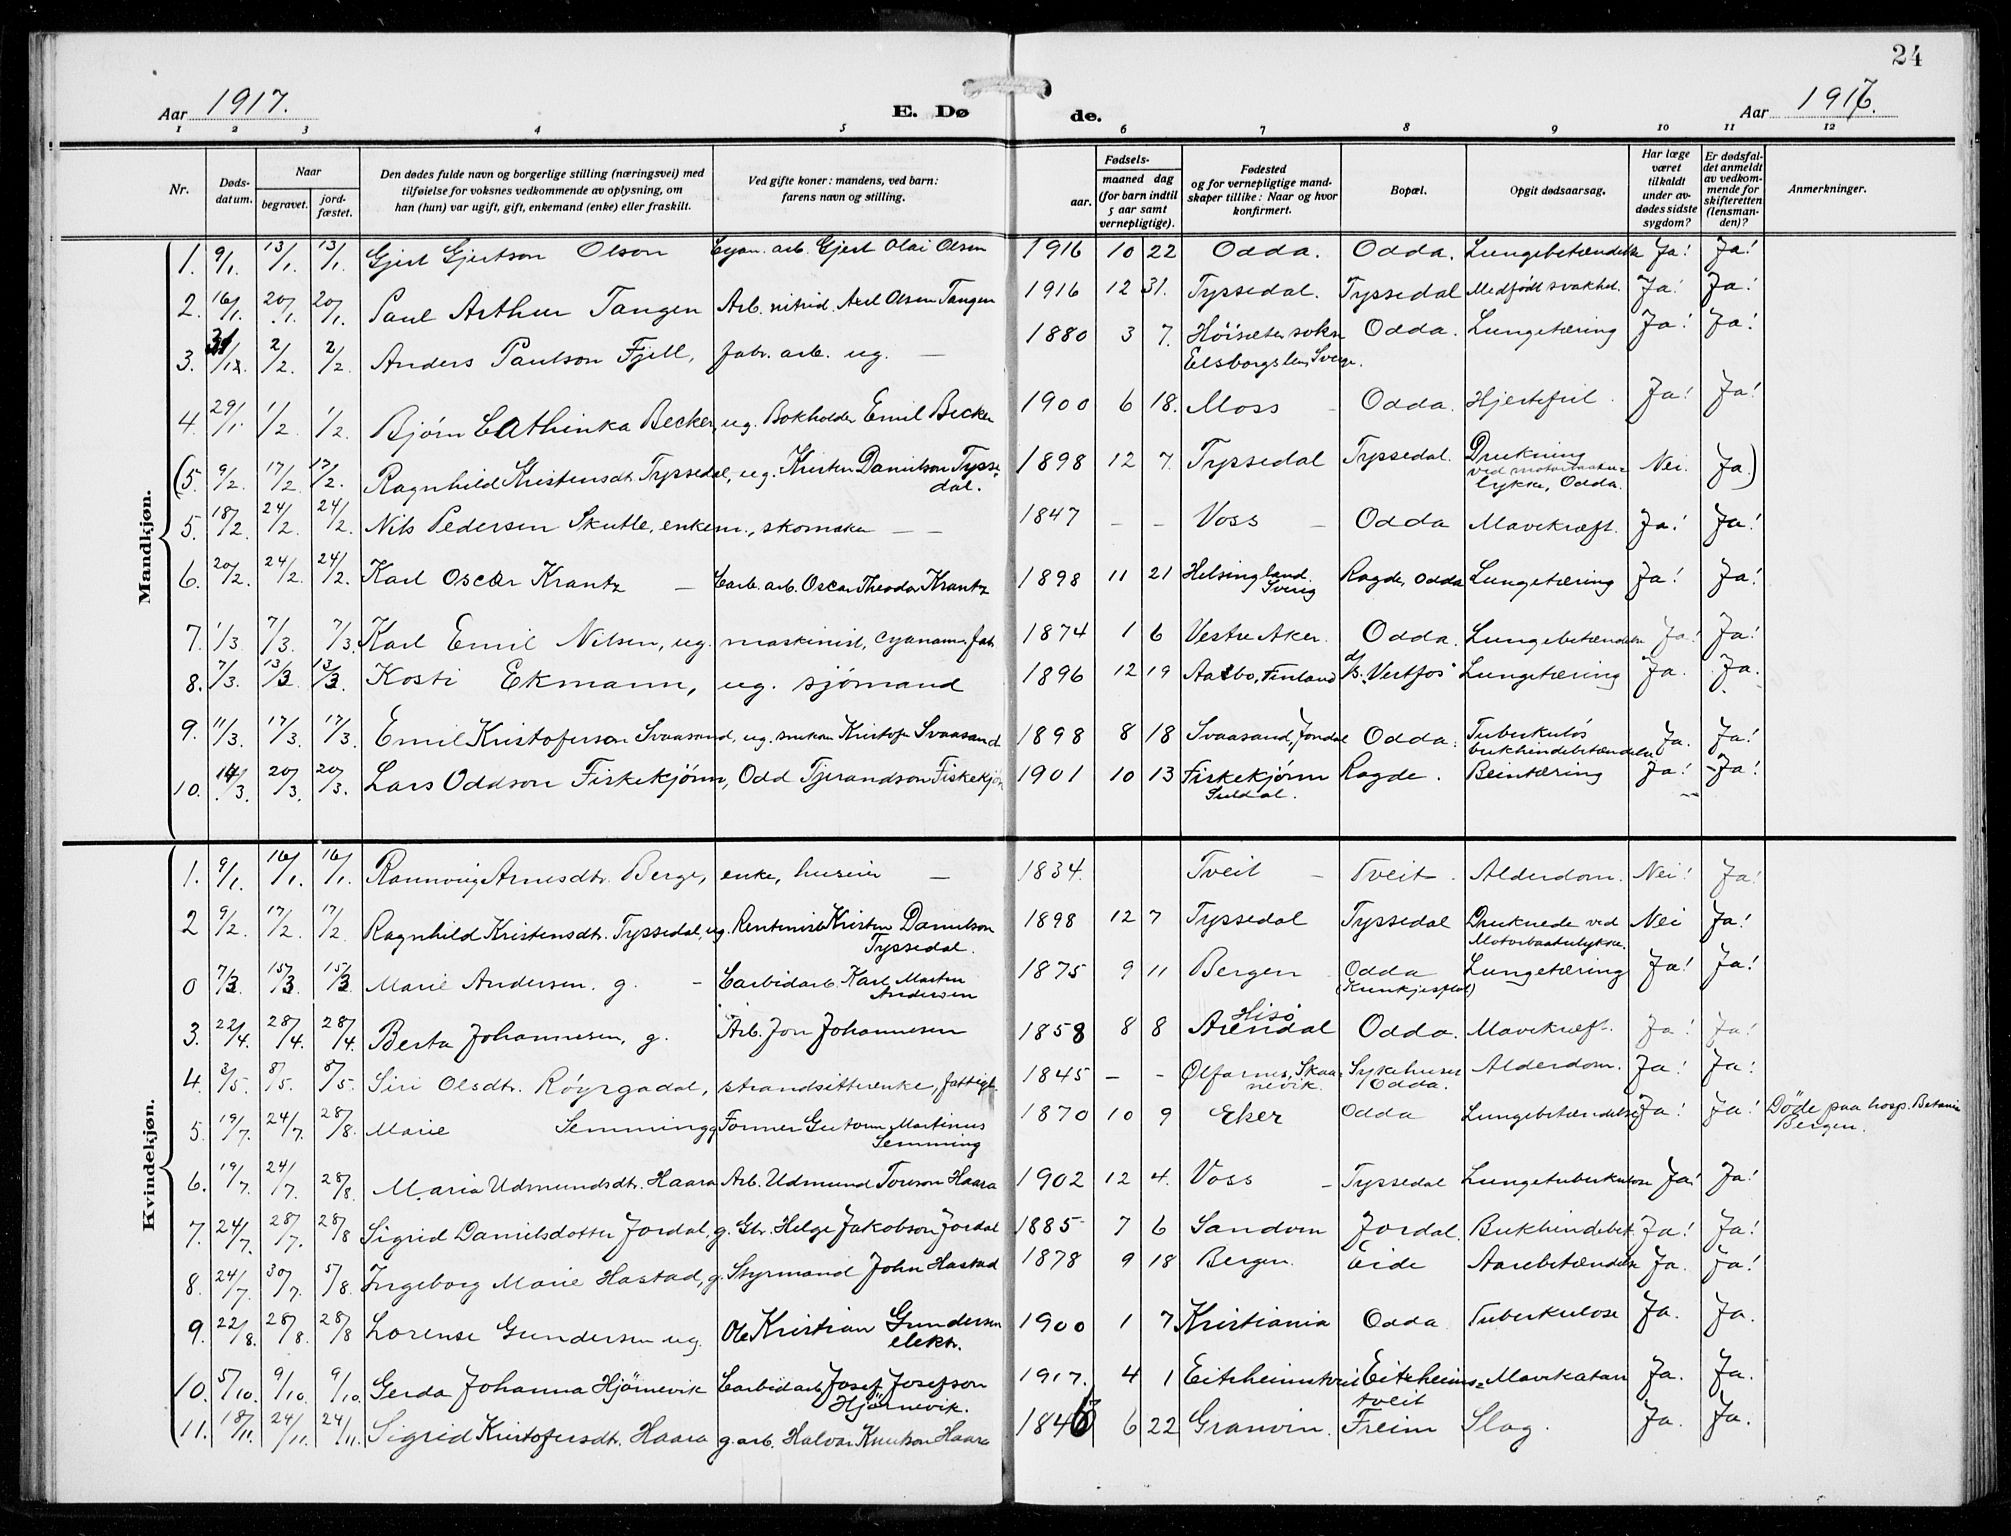 24
Aar 1917.
E. Dø
de.
Aar 1917.
1 2 3 4 5 6 7 8 9 10 11 12
Nr.
Døds-
datum.
Naar
begravet.
jord-
fæstet.
Den dødes fulde navn og borgerlige stilling (næringsvei) med
tilføielse for voksnes vedkommende av oplysning, om
han (hun) var ugift, gift, enkemand (enke) eller fraskilt.
Ved gifte koner: mandens, ved barn:
farens navn og stilling.
Fødsels-
aar.
maaned dag
(for barn indtil
5 aar samt
vernepligtige).
Fødested
og for vernepligtige mand-
skaper tillike: Naar og hvor
konfirmert.
Bopæl.
Opgit dødsaarsag.
Har læge
været
tilkaldt
under av-
dødes sidste
sygdom?
Er dødsfal-
det anmeldt
av vedkom-
mende for
skifteretten
(lensman-
den)?
Anmerkninger.
Mandkjøn.
1. 9/1 13/1. 13/1. Gjert Gjertson Olson Cyan. arb. Gjert Olai Olsen 1916 10 22 Odda. Odda. Lungebetændelse Ja! Ja!
2. 16/1. 20/1. 20/1. Paul Arthur Tangen Arb. nitrid. Axel Olsen Tangen 1916 12 31. Tyssedal. Tyssedal Medfødt svakhet. Ja! Ja!
3. 31/12. 2/2. 2/2. Anders Paulson Fjell, fabr. arb. ug. — 1880 3 7. Høisæter sokn Odda. Lungetæring Ja! Ja!
Elsborgslen, Sverge.
4. 29/1. 1/2. 1/2. Bjørn Cathinka Becker, ug. Bokholder Emil Becker 1900 6 18. Moss Odda. Hjertefeil. Ja! Ja!
(5. 9/2. 17/2. 17/2. Ragnhild Kristensdt. Tyssedal, ug. Kristen Danielson Tysse-
dal. 1898 12 7. Tyssedal Tyssedal. Drukning Nei. Ja.)
ved motorbaatu-
lykke, Odda.
5. 18/2 24/2. 24/2. Nils Pedersen Skutle, enkem., skomaker — — 1847 — — Voss — Odda Mavekræft. Ja! Ja!
6. 20/2. 24/2. 24/2. Karl Oscar Krantz — Carb. arb. Oscar Theodor Krantz 1898 11 21 Helsingland. Ragde, Odda Lungetæring Ja! Ja!
Sverig
7. 1/3. 7/3. 7/3. Karl Emil Nilsen, ug. maskinist, cyanam. fab. 1874 1 6 Vestre Aker. Odda. Lungebetændelse Ja! Ja!
8. 7/3. 13/3 13/3. Kosti Ekmann, ug. sjømand 1896 12 19 Aabo, Finland d/s. "Vestfos" Lungetæring Ja. Ja.
9. 11/3. 17/3. 17/3. Emil Kristoferson Svaasand, ug. snekker Kristofer Svaasand 1898 8 18 Svaasand, Jondal Odda. Tuberkuløs Ja. Ja!
bukhindebetændelse
10. 14/3. 20/3. 20/3. Lars Oddson Fiskekjønn, Odd Tjerandson Fiskekjøn 1901 10 13 Fiskekjønn Ragde. Beintæring Ja! Ja!
Suldal.
Kvindekjøn.
1. 9/1. 16/1. 16/1. Rannveig Arnesdtr. Berge, enke, huseier — 1834. Tveit — Tveit. Alderdom. Nei! Ja!
2 9/2. 17/2. 17/2. Ragnhild Kristensdtr. Tyssedal, ug. Rentenist Kristen Danielson 1898 12 7 Tyssedal Tyssedal Druknede ved Nei Ja!
Tyssedal. Motorbaatulykke.
0 7/3. 15/3. 15/3 Marie Andersen. g. — Carbidarb. Karl Martin 1875 9 11 Bergen Odda Lungetæring Ja! Ja!
Andersen (Kirkjesflot)
3. 22/4. 28/4. 28/4. Berta Johannesen, g. Arb. Jon Johannesen 1858 8 8 Hisø Arendal Odda. Mavekræft. Ja! Ja!
4. 3/5. 8/5. 8/5. Siri Olsdtr. Røyrgadal, strandsitterenke, fattigl. 1845 — — Ølfarnes, Skaa- Sykehuset Alderdom. Ja! Ja!
nevik. Odda.
5. 19/7. 24/7. 28/8. Marie Semming g Former Gustav Martinus 1870 10 9 Eker Odda Lungebetændelse Ja! Ja! Døde paa hosp. Betania
Semming Bergen.
6. 19/7. 24/7. 28/8. Maria Udmundsdtr. Haara Arb. Udmund Toreson Haara 1902 12 4. Voss — Tyssedal Lungetuberkulose Ja! Ja!
7. 24/7. 28/7. 28/8 Sigrid Danielsdotter Jordal, g. Gbr. Helge Jakobson Jordal 1885 7 6 Sandven Jordal. Bukhindebet. Ja! Ja!
8. 24/7. 30/7. 5/8. Ingeborg Marie Hastad, g. Styrmand John Hastad 1878 9 18 Bergen. Eide Aarebetændelse Ja. Ja!
9. 22/8. 28/8. 28/8 Lorense Gundersen ug. Ole Kristian Gundersen 1900 1 7 Kristiania Odda Tuberkulose Ja. Ja.
elektr.
10. 5/10. 9/10. 9/10. Gerda Johanna Hjørnevik Carbidarb. Josef Josefson 1917. 4 1 Eitrheimstveit Eitrheims- Mavekatarr Ja. Ja.
Hjørnevik. tveit
11. 18/11. 24/11. 24/11. Sigrid Kristofersdtr. Haara g. arb. Halvar Knutson Haara 1846 6 22 Granvin. Freim Slag. Ja. Ja.